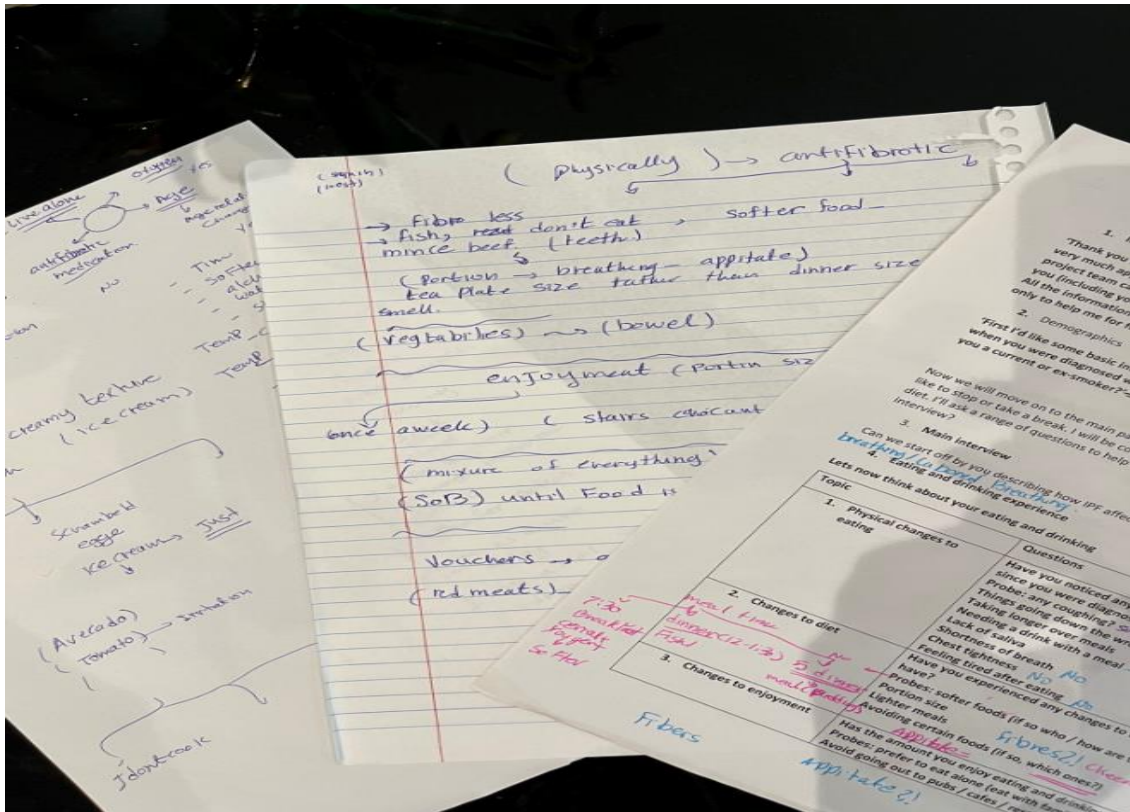 Live alone
oxygen yes
Age
antifibrotic
medication
No
creamy texture
(ice cream)
Scrambeld
egge
ice cream Just
(Avecado)
(Tomato) → irritation
I dont cook
(physically) → antifibrotic
→ Fibre less
→ fish, don't eat , softer food
mince beef. (teeth)
(portion → breathing - appitate)
tea plate size rather than dinner size
smell.
(vegtabilies) → (bowel)
enjoyment (portin siz
once aweek) ( stairs
(mixture of everything)
(SOB) until Food is
Vouchers →
(red meats)
1.
'Thank you
very much ap
project team ca
you (including yo
All the information
only to help me for m
2. Demographics
'First I'd like some basic in
when you were diagnosed w
you a current or ex-smoker?'
Now we will move on to the main pa
like to stop or take a break. I will be co
diet. I'll ask a range of questions to help
interview?
3. Main interview
Can we start off by you describing how IPF affec
breathing / Labored Breathing
4. Eating and drinking experience
Lets now think about your eating and drinking
Topic
Questions
1. Physical changes to
eating
Have you noticed any
since you were diagno
Probe: any coughing?
Things going down the w
Taking longer over meals
Needing a drink with a meal
Lack of saliva
Shortness of breath No
Chest tightness No
Feeling tired after eating No
2. Changes to diet
Have you experienced any changes to
have?
Probes: softer foods (if so who / how are
Portion size
Lighter meals
Avoiding certain foods (if so, which ones?)
Fibres?! chee
meal time
7:30
breakfast
dinner (12-1:3) 5 dinner
Fish
3. Changes to enjoyment
Has the amount you enjoy eating and drinki
Probes: prefer to eat alone (eat with
Avoid going out to pubs / cafes /
Fibers
appitate?!